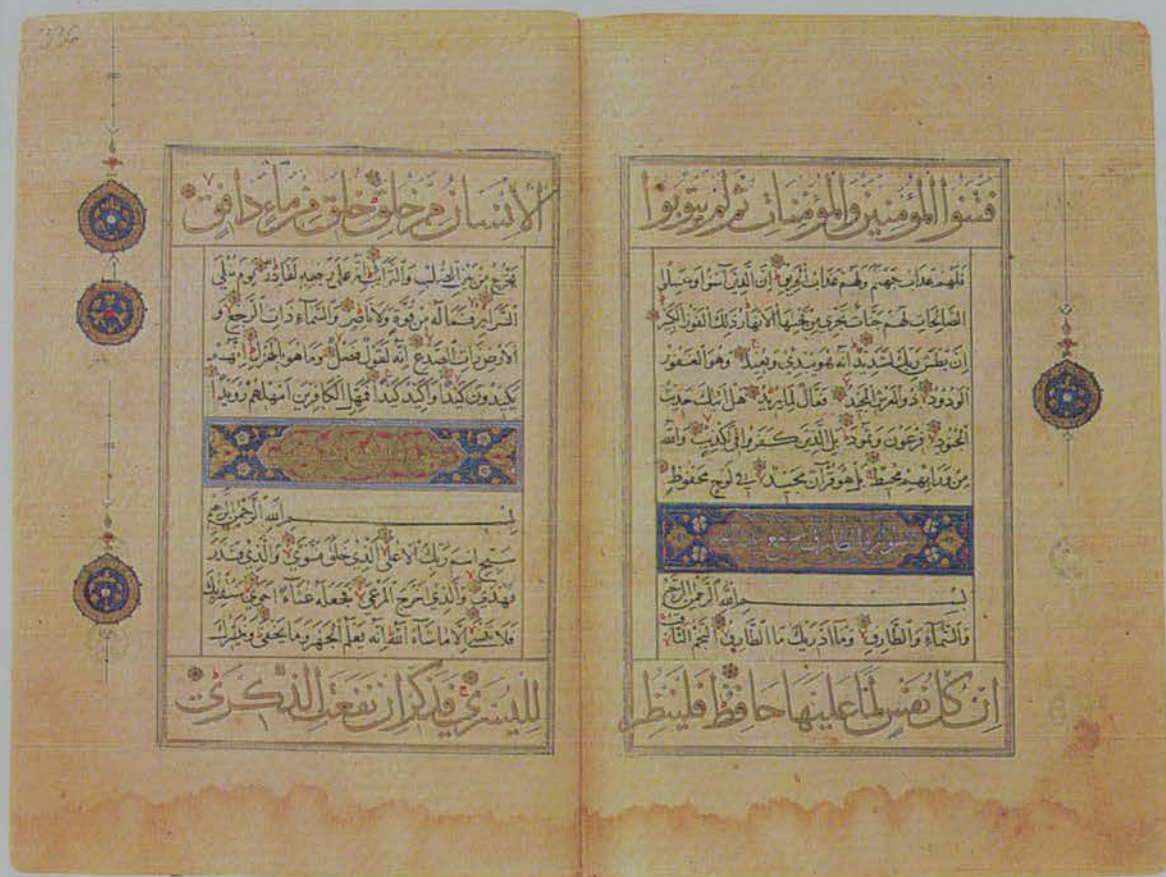 فتنوا المؤمنين والمؤمنات ثم لم يتوبوا
فلهم عذاب جهنم ولهم عذاب الحريق إن الذين آمنوا وعملوا
الصالحات لهم جنات تجري من تحتها الأنهار ذلك الفوز الكبير
إن بطش ربك لشديد إنه هو يبدئ ويعيد وهو الغفور
الودود ذو العرش المجيد فعال لما يريد هل أتيك حديث
الجنود فرعون وثمود بل الذين كفروا في تكذيب والله
من ورائهم محيط بل هو قرآن مجيد في لوح محفوظ
سورة الطارق سبع عشرة آية
بسم الله الرحمن الرحيم
والسماء والطارق وما أدريك ما الطارق النجم الثاقب
إن كل نفس لما عليها حافظ فلينظر
الإنسان مم خلق خلق من ماء دافق
يخرج من بين الصلب والترائب إنه على رجعه لقادر يوم تبلى
السرائر فما له من قوة ولا ناصر والسماء ذات الرجع و
الأرض ذات الصدع إنه لقول فصل وما هو بالهزل إنهم
يكيدون كيدا وأكيد كيدا فمهل الكافرين أمهلهم رويدا
بسم الله الرحمن الرحيم
سبح اسم ربك الأعلى الذي خلق فسوى والذي قدر
فهدى والذي أخرج المرعى فجعله غثاء أحوى سنقرئك
فلا تنسى إلا ما شاء الله إنه يعلم الجهر وما يخفى ونيسرك
لليسرى فذكر إن نفعت الذكرى